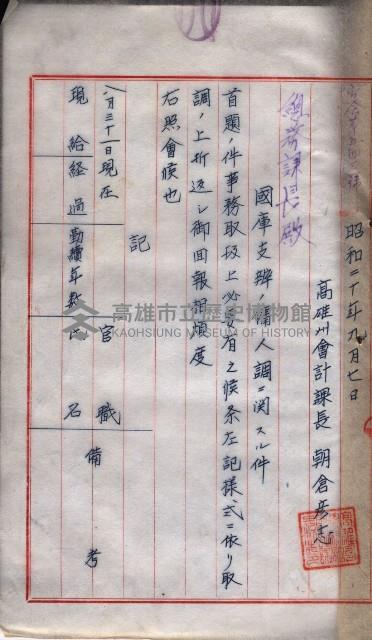 昭和二十年九月七日
高雄州會計課長 朝倉彦志
總務課長殿
國庫支辨ノ傭人調ニ関スル件
首題ノ件事務取扱上必要有之候条左記様式ニ依リ取
調ノ上折返シ御回報相煩度
右照會候也
記
八月三十一日現在
現給経過
勤續年数
官職
氏名
備考
高雄市立歷史博物館
KAOHSIUNG MUSEUM OF HISTORY